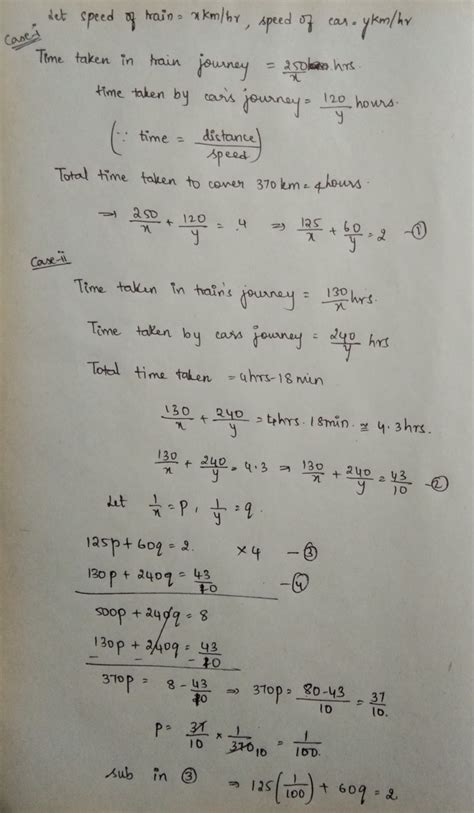 Let speed of train = x km/hr, speed of car = y km/hr
Case-i
Time taken in train journey = 250/x hrs.
time taken by car's journey = 120/y hours.
(∵ time = distance/speed)
Total time taken to cover 370 km = 4 hours.
⇒ 250/x + 120/y = 4 ⇒ 125/x + 60/y = 2 —①
Case-ii
Time taken in train's journey = 130/x hrs.
Time taken by cars journey = 240/y hrs
Total time taken = 4hrs-18min
130/x + 240/y = 4hrs. 18min. ≅ 4.3hrs.
130/x + 240/y = 4.3 ⇒ 130/x + 240/y = 43/10 —②
Let 1/x = p, 1/y = q.
125p + 60q = 2. ×4 —③
130p + 240q = 43/10 —④
500p + 240q = 8
130p + 240q = 43/10
- - -
370p = 8 - 43/10 ⇒ 370p = 80-43/10 = 37/10.
p = 37/10 × 1/370 10 = 1/100.
sub in ③ ⇒ 125(1/100) + 60q = 2